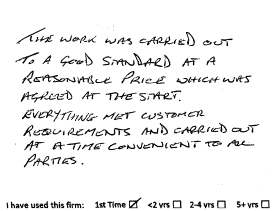 THE WORK WAS CARRIED OUT
TO A GOOD STANDARD AT A
REASONABLE PRICE WHICH WAS
AGREED AT THE START.
EVERYTHING MET CUSTOMER
REQUIREMENTS AND CARRIED OUT
AT A TIME CONVENIENT TO ALL
PARTIES.
I have used this firm: 1st Time ☑ <2 yrs ☐ 2-4 yrs ☐ 5+ yrs ☐